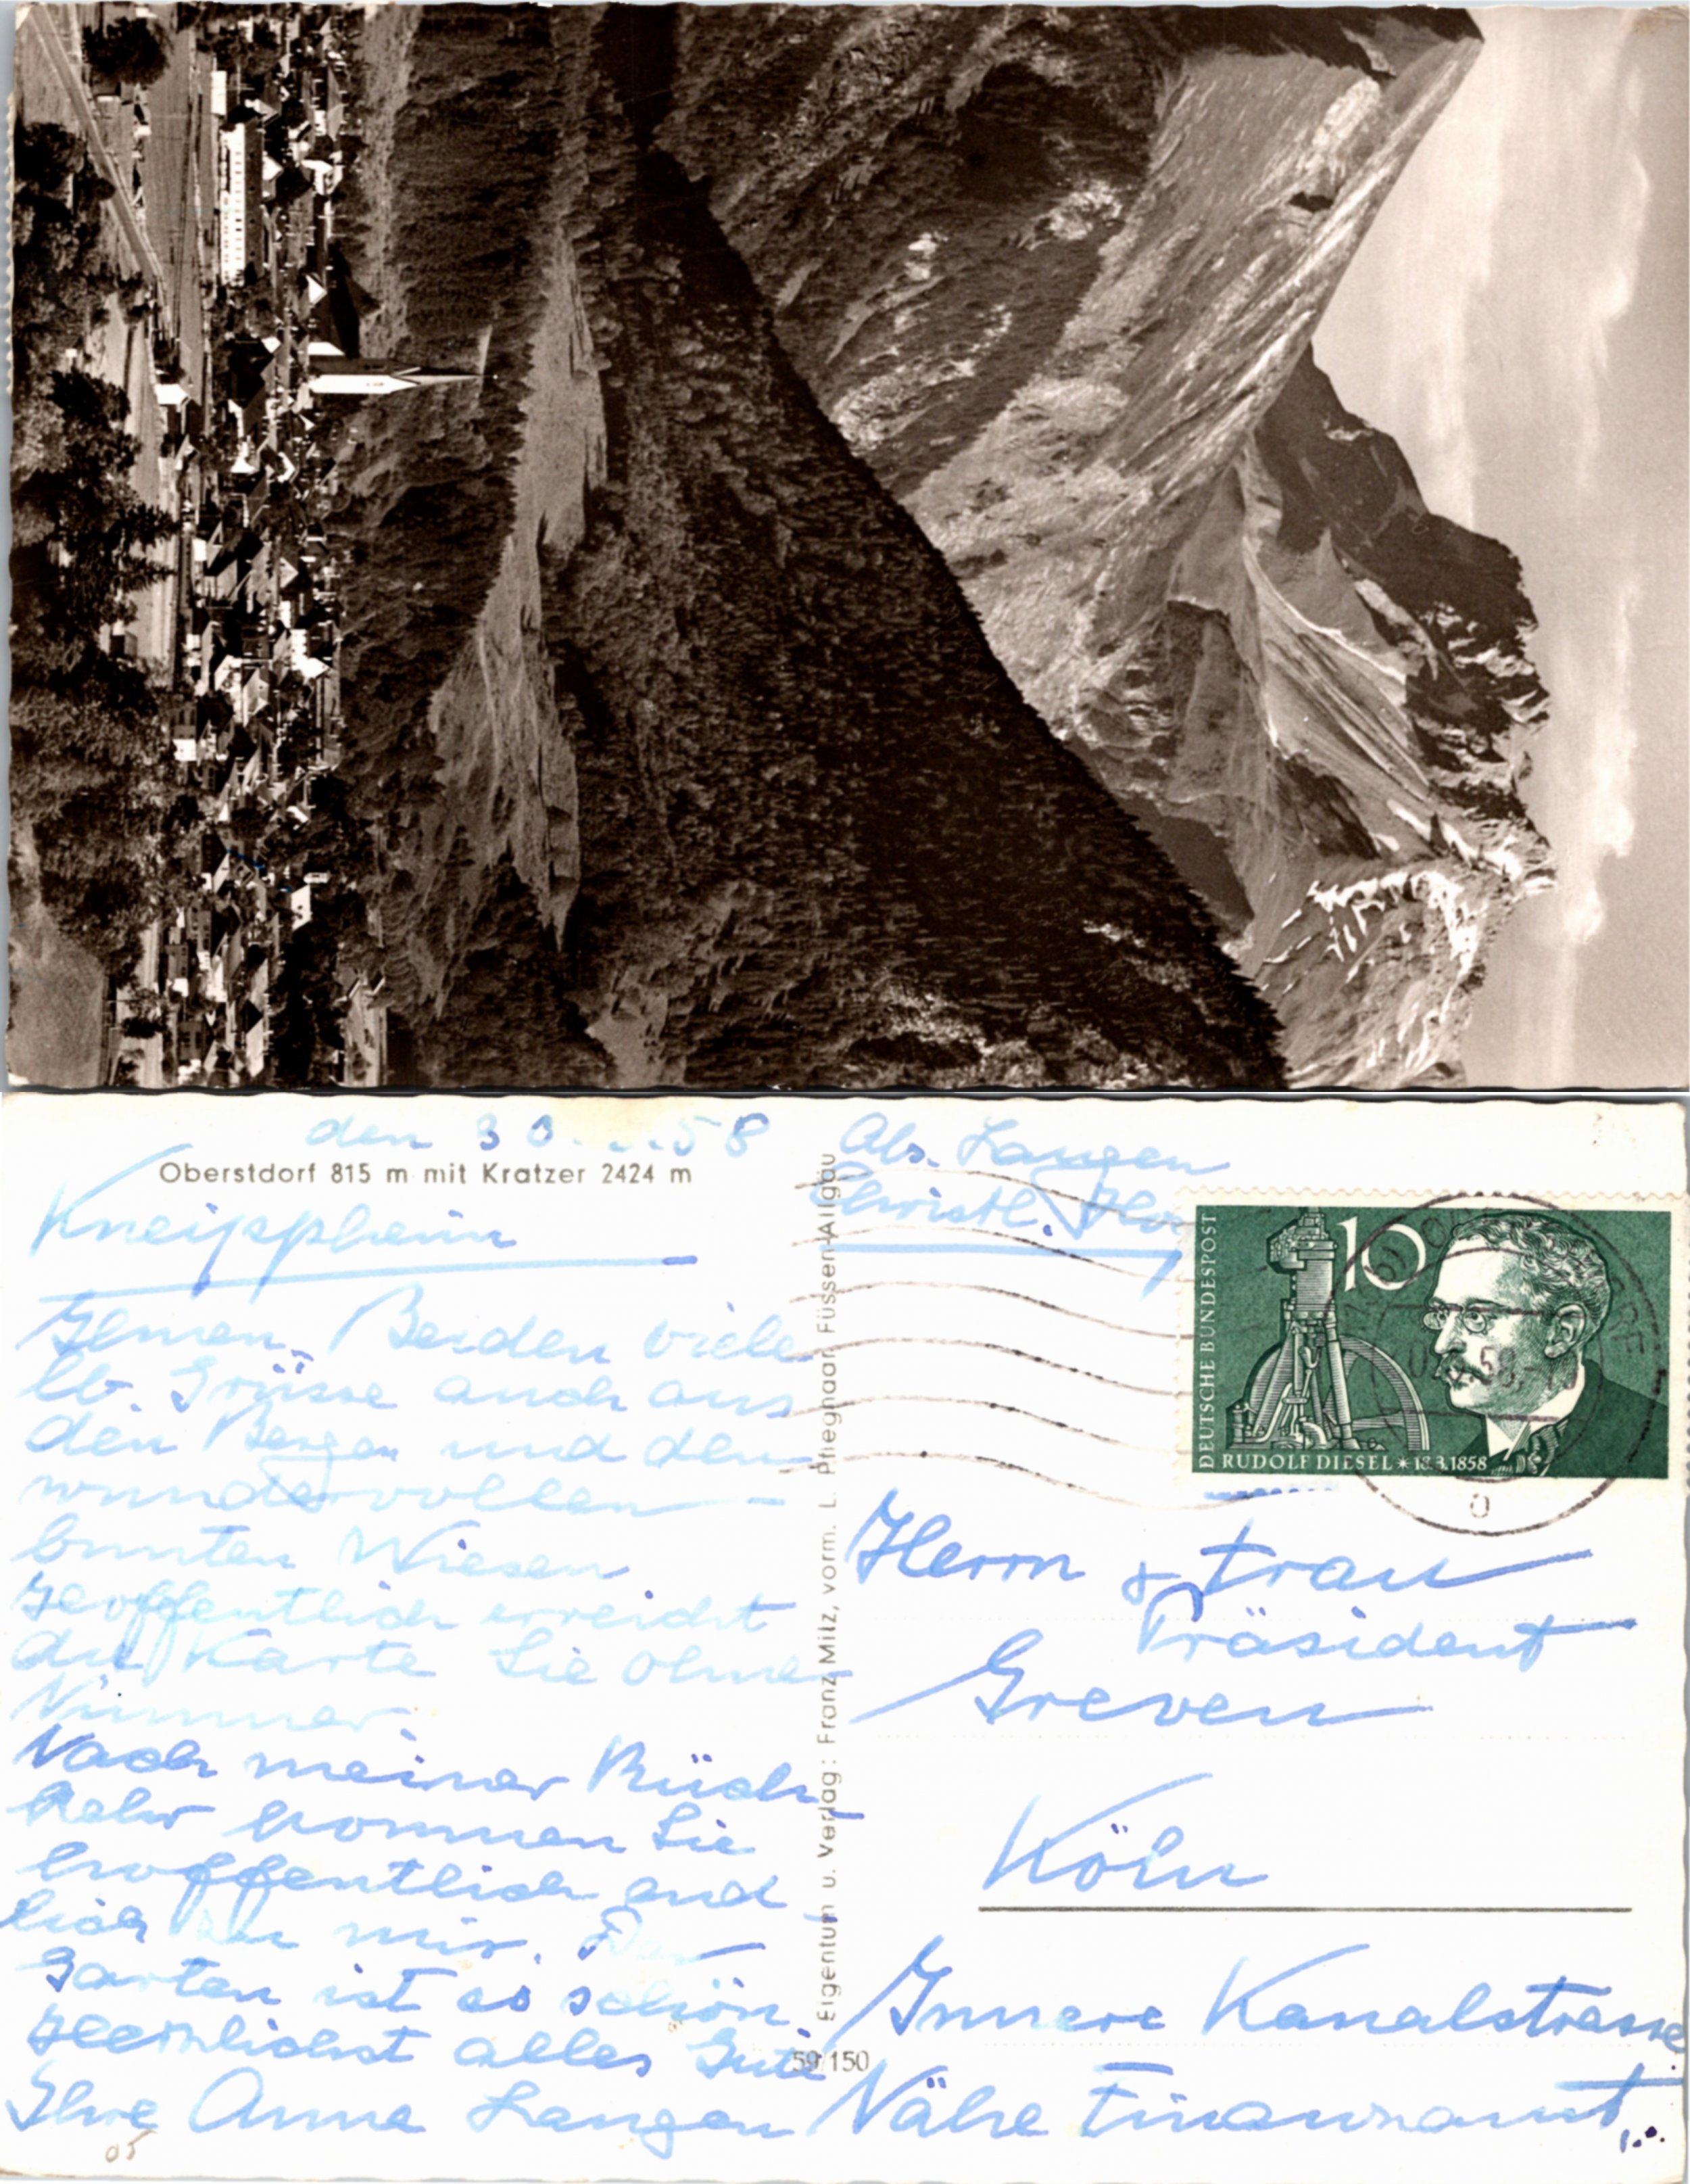 den 30. 58
Oberstdorf 815 m mit Kratzer 2424 m
Kneippheim
Ihnen Beiden viele
lb. Grüsse auch aus
den Bergen und den
wundervollen
bunten Wiesen
die Karte Sie ohne
Nummer.
Nach meiner Rück-
kehr kommen Sie
hoffentlich end-
lich mir. Der
Garten ist so schön
Herzlichst alles Gute
Ihre Anna Langen
05
Eigentum u. Verlag: Franz Milz, vorm. L. Pfleghaar, Füssen-Allgäu
59/150
Abs. Langen
Christl.
DEUTSCHE BUNDESPOST
10
RUDOLF DIESEL * 18.3.1858
Herrn & Frau
Präsident
Greven
Köln
Innere Kanalstrasse
Nähe Finanzamt